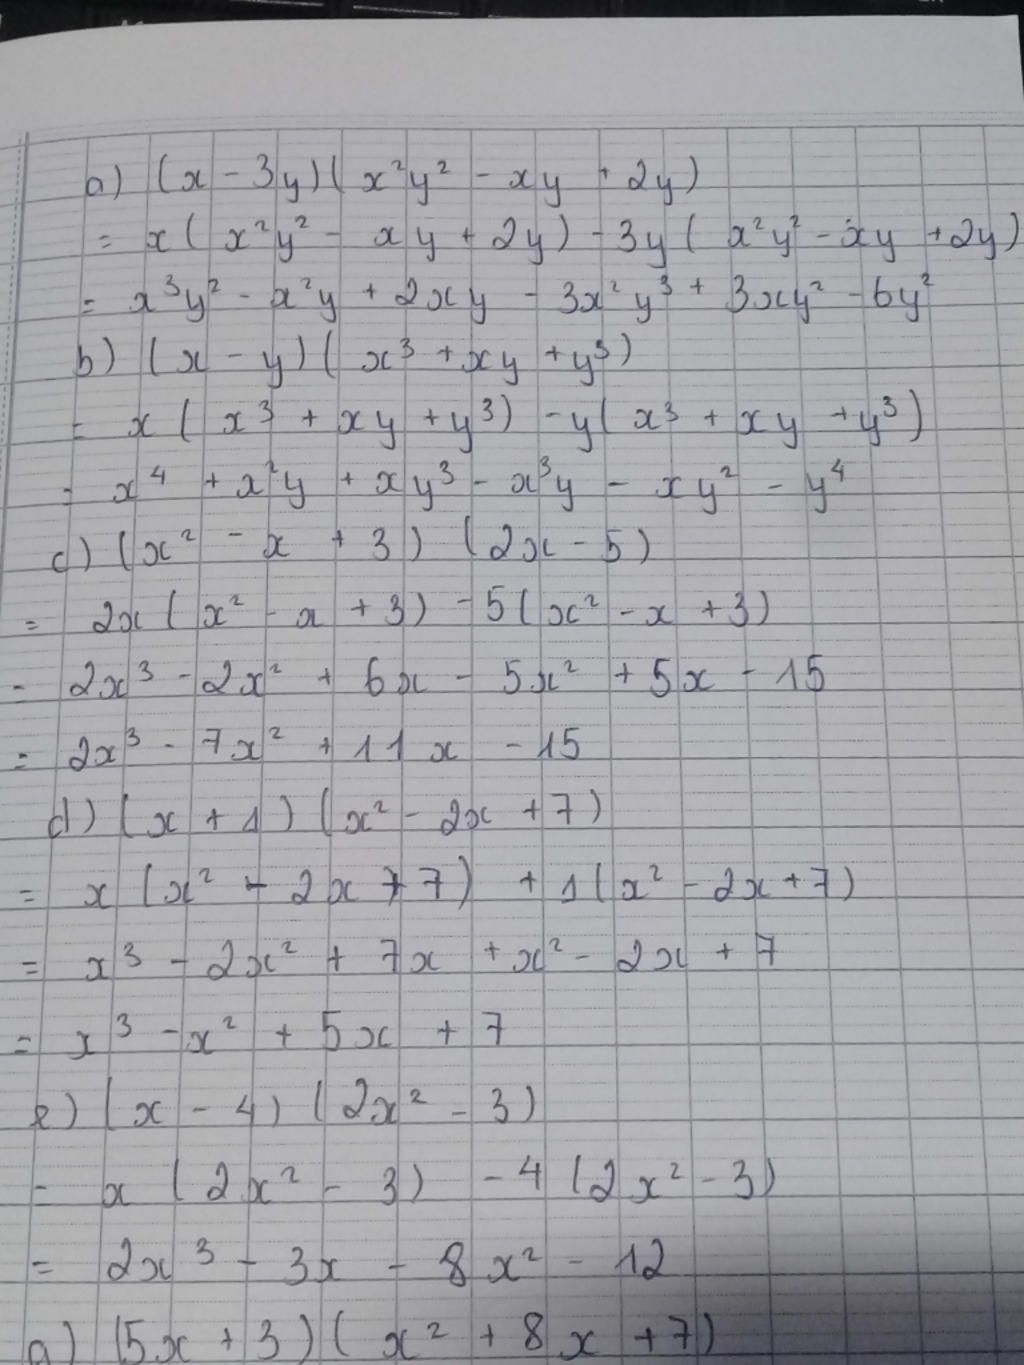 a) (x - 3y)(x²y² - xy + 2y)
= x(x²y² - xy + 2y) - 3y(x²y² - xy + 2y)
= x³y² - x²y + 2xy - 3x²y³ + 3xy² - 6y²
b) (x - y)(x³ + xy + y³)
= x(x³ + xy + y³) - y(x³ + xy + y³)
= x⁴ + x²y + xy³ - x³y - xy² - y⁴
c) (x² - x + 3)(2x - 5)
= 2x(x² - x + 3) - 5(x² - x + 3)
= 2x³ - 2x² + 6x - 5x² + 5x - 15
= 2x³ - 7x² + 11x - 15
d) (x + 1)(x² - 2x + 7)
= x(x² - 2x + 7) + 1(x² - 2x + 7)
= x³ - 2x² + 7x + x² - 2x + 7
= x³ - x² + 5x + 7
e) (x - 4)(2x² - 3)
= x(2x² - 3) - 4(2x² - 3)
= 2x³ - 3x - 8x² - 12
g) (5x + 3)(x² + 8x + 7)